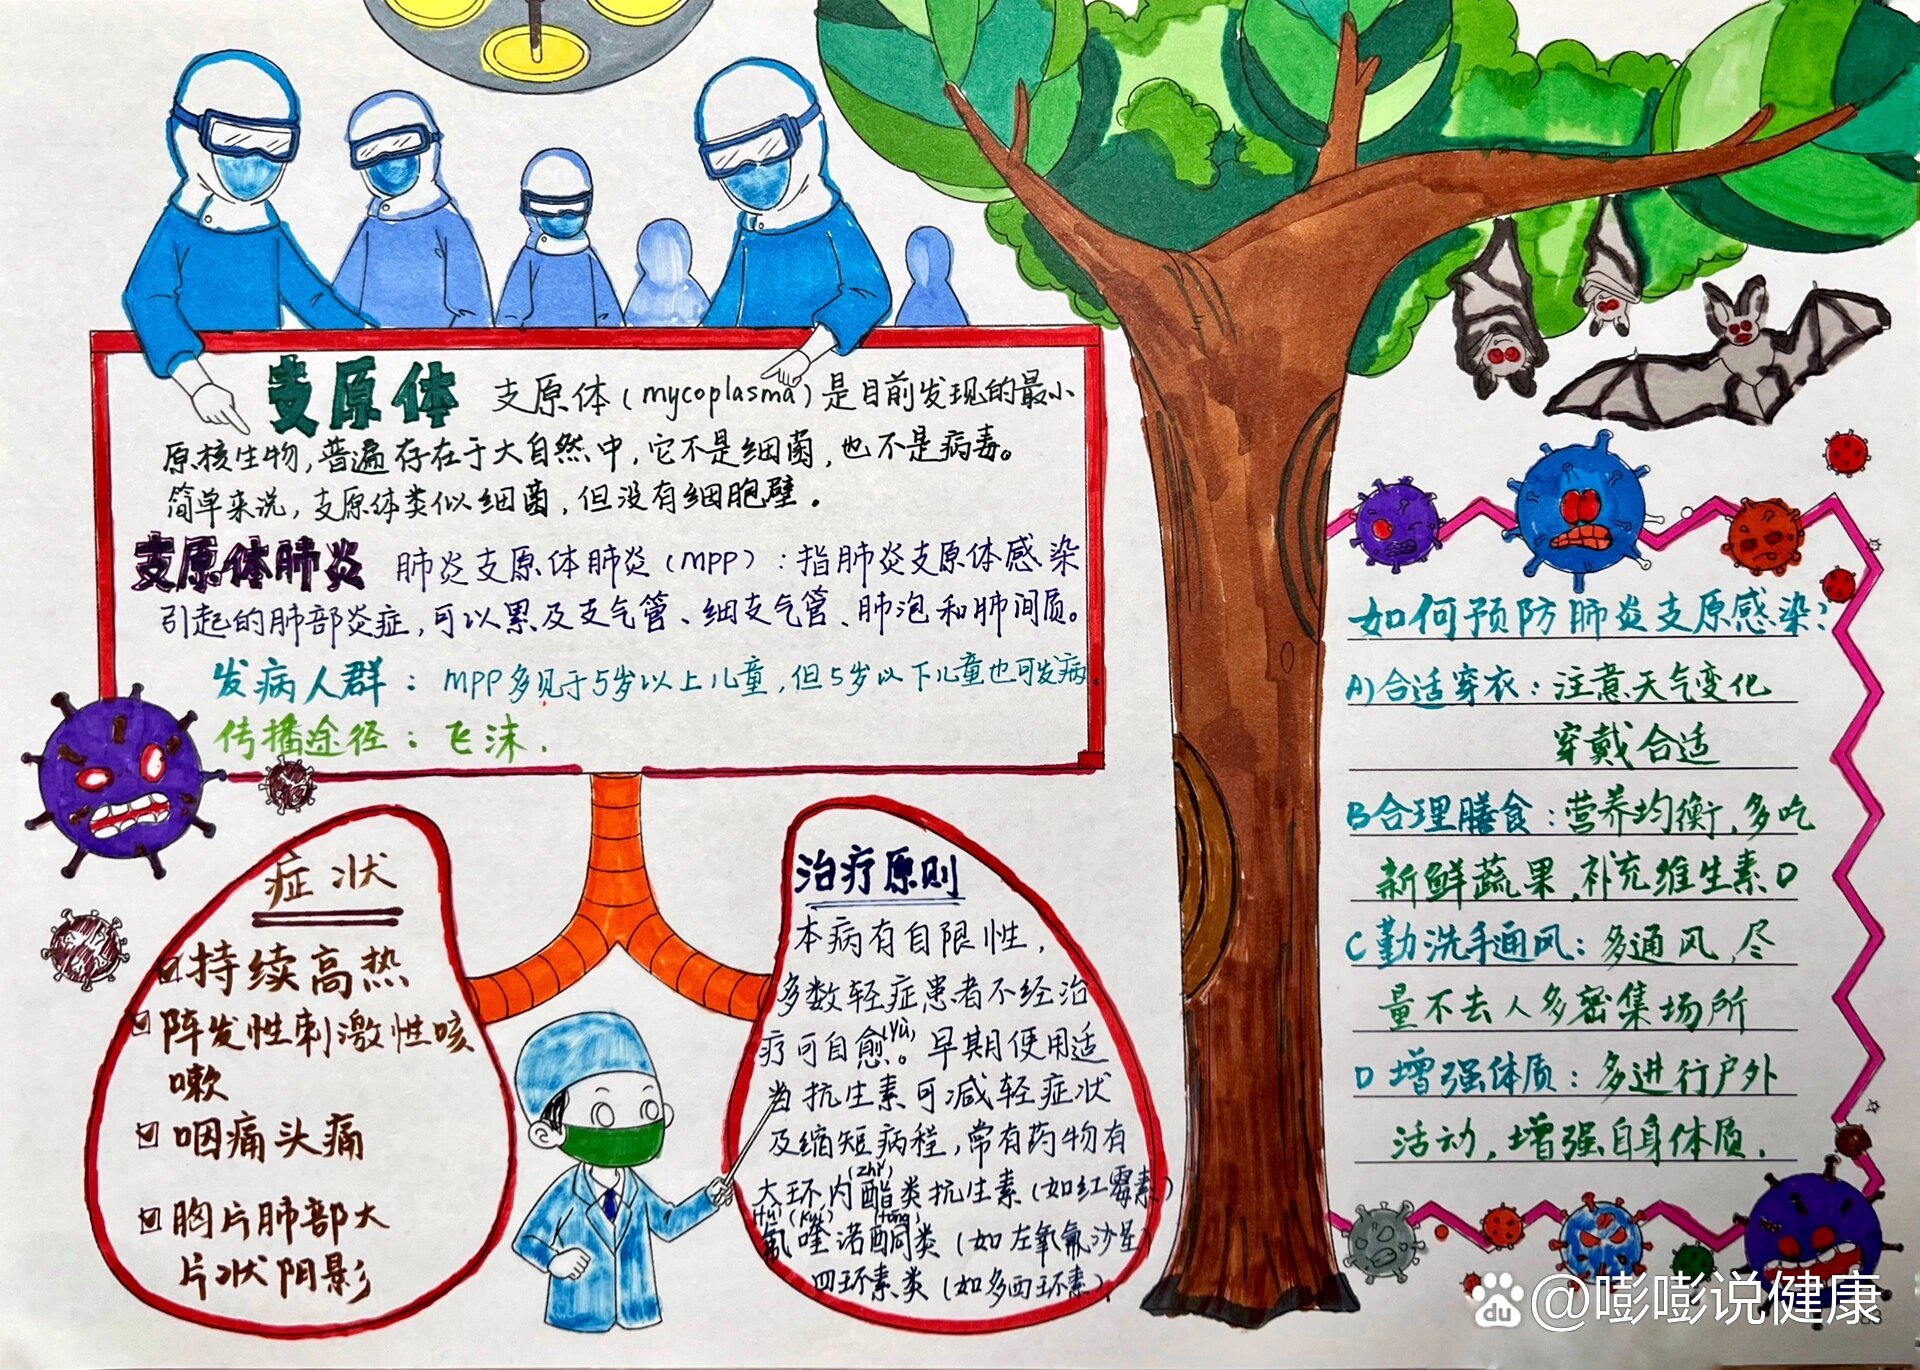 支原体 支原体(mycoplasma)是目前发现的最小
原核生物,普遍存在于大自然中,它不是细菌,也不是病毒。
简单来说,支原体类似细菌,但没有细胞壁。
支原体肺炎 肺炎支原体肺炎(MPP):指肺炎支原体感染
引起的肺部炎症,可以累及支气管、细支气管、肺泡和肺间质。
发病人群:MPP多见于5岁以上儿童,但5岁以下儿童也可发病.
传播途径:飞沫.
症状
持续高热
阵发性刺激性咳
嗽
咽痛头痛
胸片肺部大
片状阴影
治疗原则
本病有自限性,
多数轻症患者不经治
疗可自愈(yù)。早期使用适
当抗生素可减轻症状
及缩短病程,常有药物有
大环内酯(zhǐ)类抗生素(如红霉素)
氟喹诺酮类(如左氧氟沙星)
四环素类(如多西环素).
如何预防肺炎支原感染?
A)合适穿衣:注意天气变化
穿戴合适
B合理膳食:营养均衡,多吃
新鲜蔬果,补充维生素D
C勤洗手通风:多通风,尽
量不去人多密集场所
D增强体质:多进行户外
活动,增强自身体质.
du @嘭嘭说健康